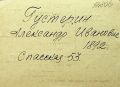 Густерин
Александр Иванович
1892.
Спасская 53